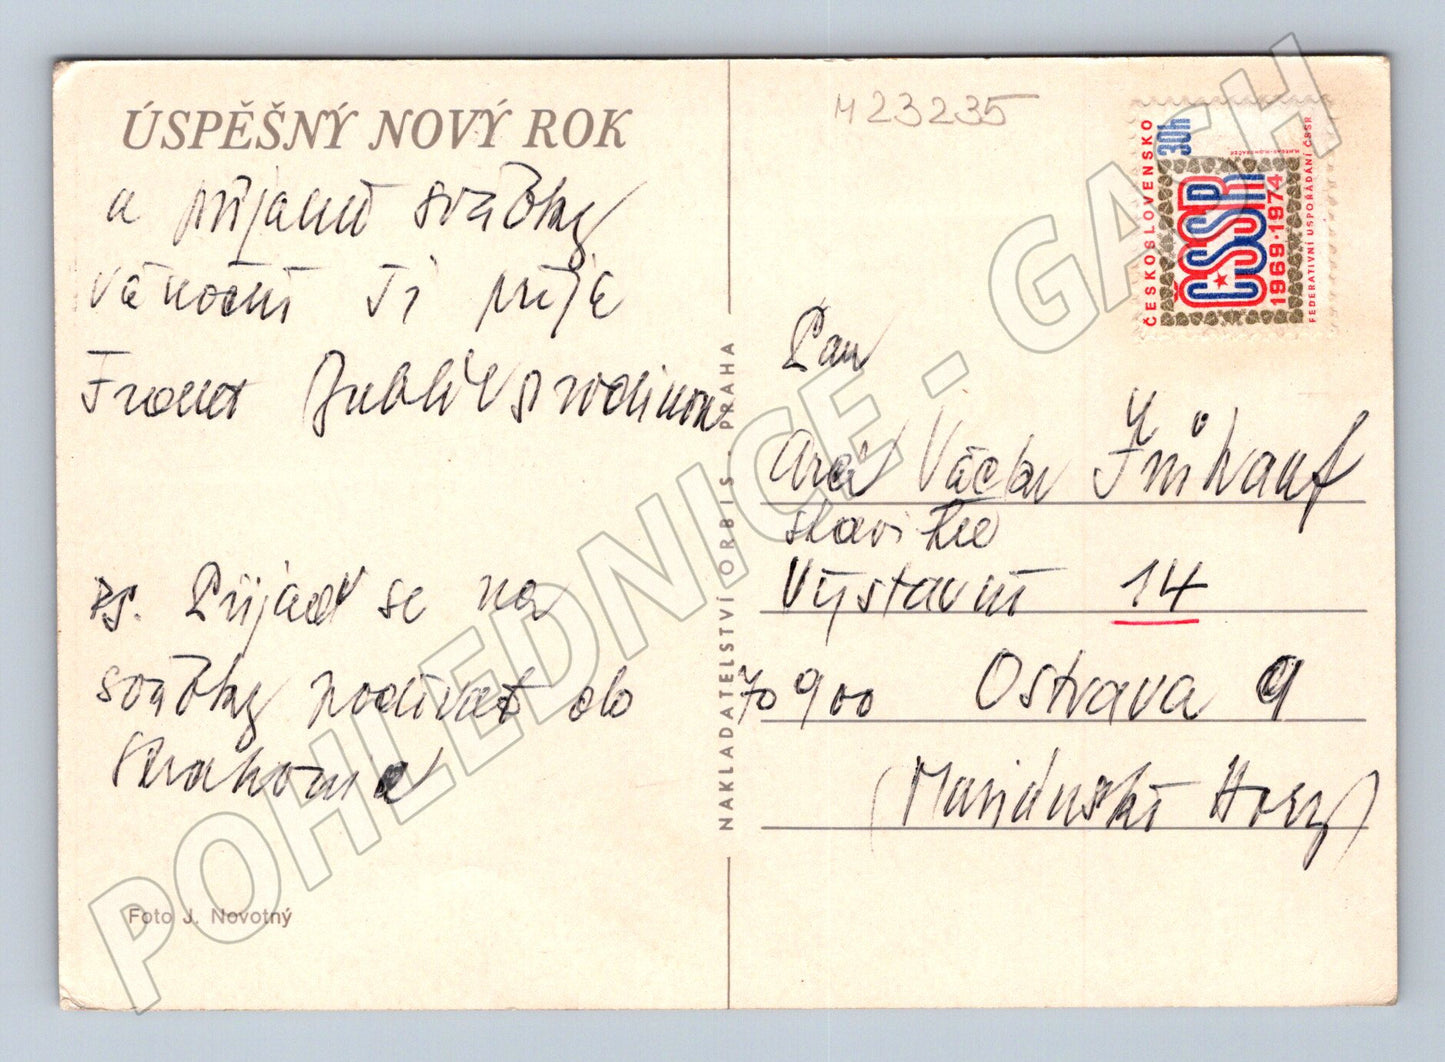 ÚSPĚŠNÝ NOVÝ ROK
a příjemné svátky
vánoční Ti přeje
s rodinou
PS. Přijeď se na
svátky podívat do
M 23235
ČESKOSLOVENSKO
30h
ČSSR
1969·1974
FEDERATIVNÍ USPOŘÁDÁNÍ ČSSR
Pan
Václav
stavitel
Výstavní 14
70900 Ostrava 9
(Mariánské Hory)
NAKLADATELSTVÍ ORBIS - PRAHA
Foto J. Novotný
POHLEDNICE - GACH